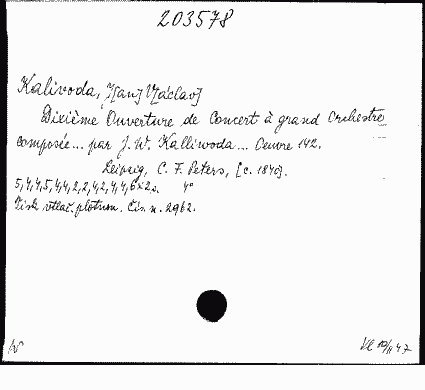 203578
Kalivoda, J[an] V[áclav]
Dixième Ouverture de Concert à grand Orchestre
composée... par J. W. Kalliwoda... Oeuvre 142.
Leipzig, C. F. Peters, [c. 1840].
5,4,4,5,4,4,2,2,4,2,4,4,6x2s. 4°
Tisk vtlač. plotnou. Čís. n. 2962.